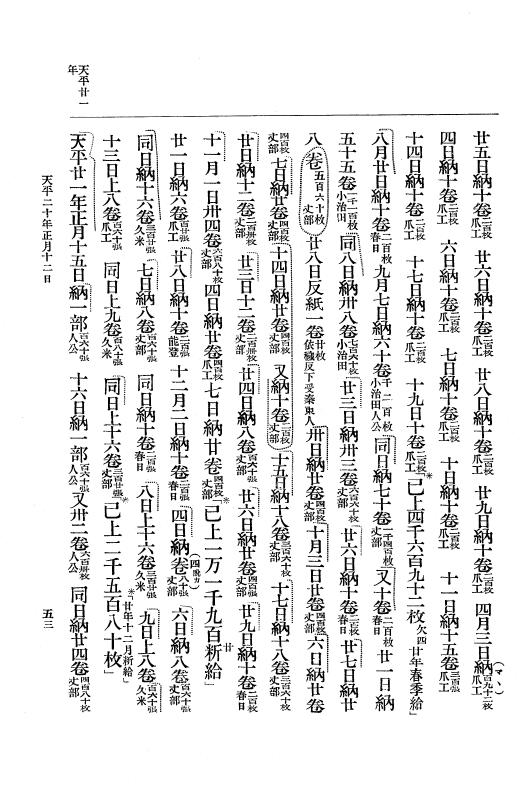 廿五日納十卷二百枚爪工 廿六日納十卷二百枚爪工 廿八日納十卷二百枚爪工 廿九日納十卷二百枚爪工 四月三日納百九十二枚爪工(マヽ)
四日納十卷二百枚爪工 六日納十卷二百枚爪工 七日納十卷二百枚爪工 十日納十卷二百枚爪工 十一日納十五卷三百張爪工
十四日納十卷二百枚爪工 十七日納十卷二百枚爪工 十九日十卷二百枚爪工*「已上四千六百九十二枚欠四廿年春季給」
八月廿日納十卷二百枚春日 九月七日納六十卷千二百枚小治田人公 同日納七十卷一千四百枚丈部 又十卷二百枚春日 廿一日納
五十五卷一千一百枚小治田 同八日納卅八卷七百六十枚小治田 廿三日納卅三卷六百六十枚丈部 廿六日納十卷二百枚春日 廿七日納廿
八卷五百六十枚丈部 廿八日反紙一卷廿枚依穢反下受秦東人 卅日納廿卷四百枚丈部 十月三日廿卷四百枚丈部 六日納廿卷
四百枚丈部 七日納廿卷四百枚丈部 十四日納廿卷四百枚丈部 又納十卷二百枚丈部 十五日納十八卷三百六十枚丈部 十七日納十八卷三百六十枚丈部
廿日納十二卷二百卌枚丈部 廿三日十二卷二百卌枚丈部 廿四日納八卷百六十枚丈部 廿六日納廿卷四百枚丈部 廿九日納十卷二百枚春日
十一月一日卅四卷六百八十枚丈部 四日納廿卷四百枚爪工 七日納廿卷四百枚丈部*「已上一万一千九百新給」廿
廿一日納六卷百廿張爪工 廿八日納十卷二百張能登 十二月二日納十卷二百枚春日 四日納(四脱カ)卷八十張丈部 六日納八卷百六十張丈部
同日納十六卷三百廿張久米 七日納八卷百六十張丈部 同日納十卷二百張春日 八日上十六卷三百廿張久米 九日上八卷百六十張久米
十三日上八卷百六十張爪工 同日上九卷百八十張久米 同日上十六卷三百廿張丈部*「已上二千五百八十枚」*「廿年十二月新給」
天平廿一年正月十五日納一部百六十張人公 十六日納一部百六十張人公 又卅二卷六百卌枚人公 同日納廿四卷四百八十枚丈部
天平廿一年
天平二十年正月十二日
五三